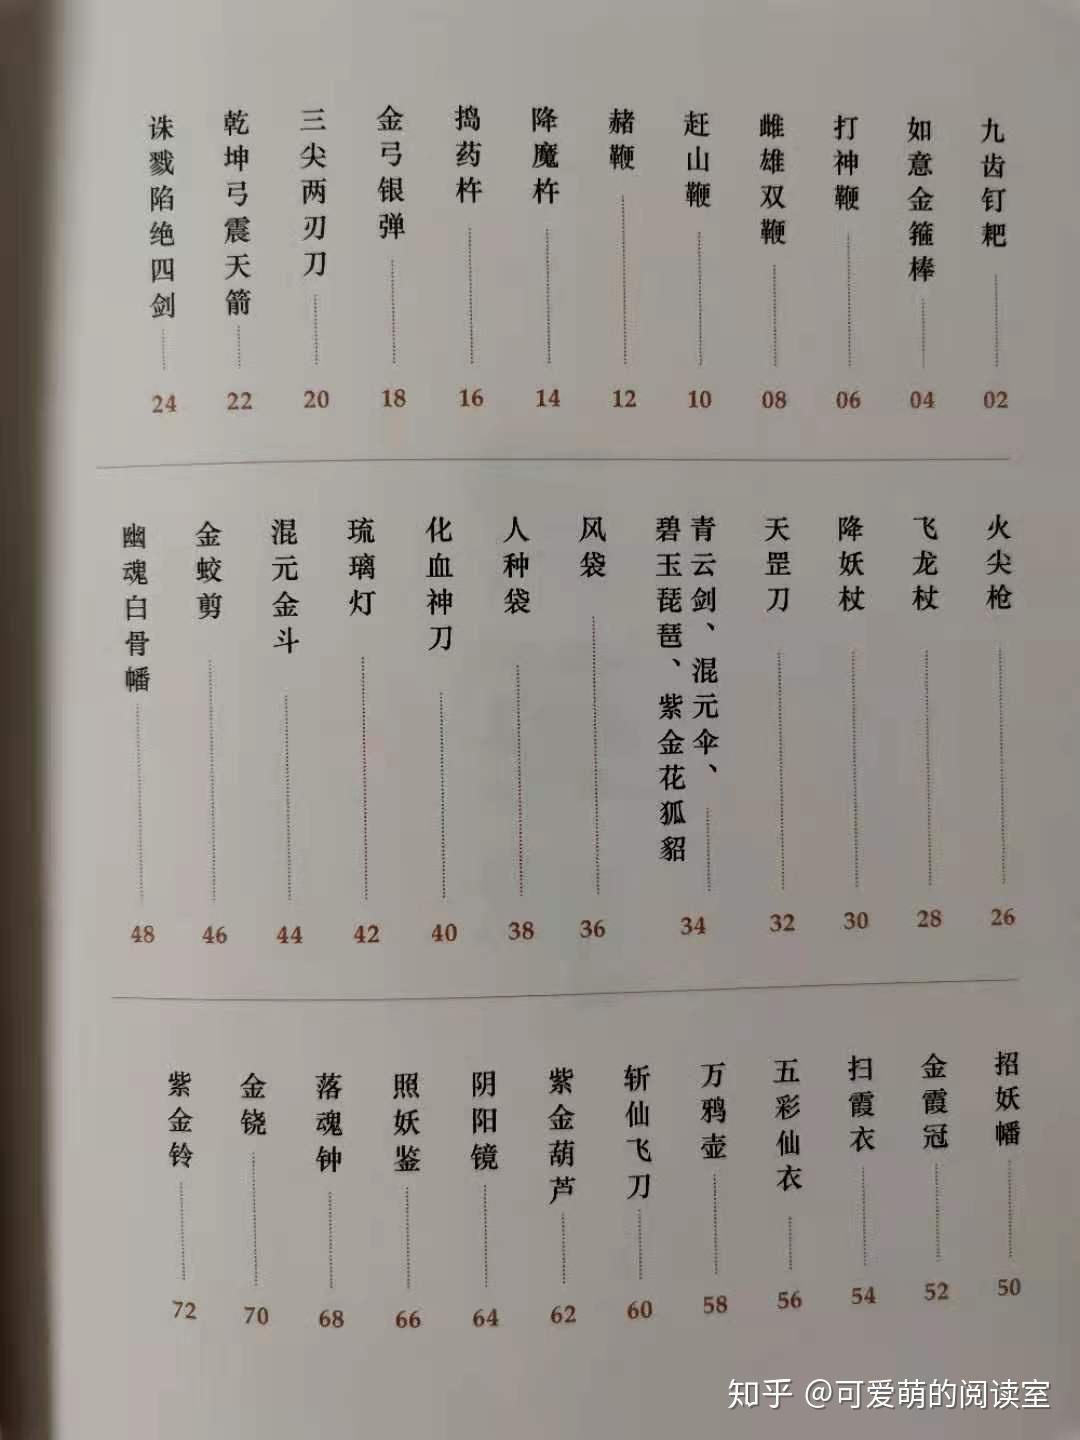 九齿钉耙 02
如意金箍棒 04
打神鞭 06
雌雄双鞭 08
赶山鞭 10
赭鞭 12
降魔杵 14
捣药杵 16
金弓银弹 18
三尖两刃刀 20
乾坤弓震天箭 22
诛戮陷绝四剑 24
火尖枪 26
飞龙杖 28
降妖杖 30
天罡刀 32
青云剑、混元伞、
碧玉琵琶、紫金花狐貂 34
风袋 36
人种袋 38
化血神刀 40
琉璃灯 42
混元金斗 44
金蛟剪 46
幽魂白骨幡 48
招妖幡 50
金霞冠 52
扫霞衣 54
五彩仙衣 56
万鸦壶 58
斩仙飞刀 60
紫金葫芦 62
阴阳镜 64
照妖鉴 66
落魂钟 68
金铙 70
紫金铃 72
知乎 @可爱萌的阅读室